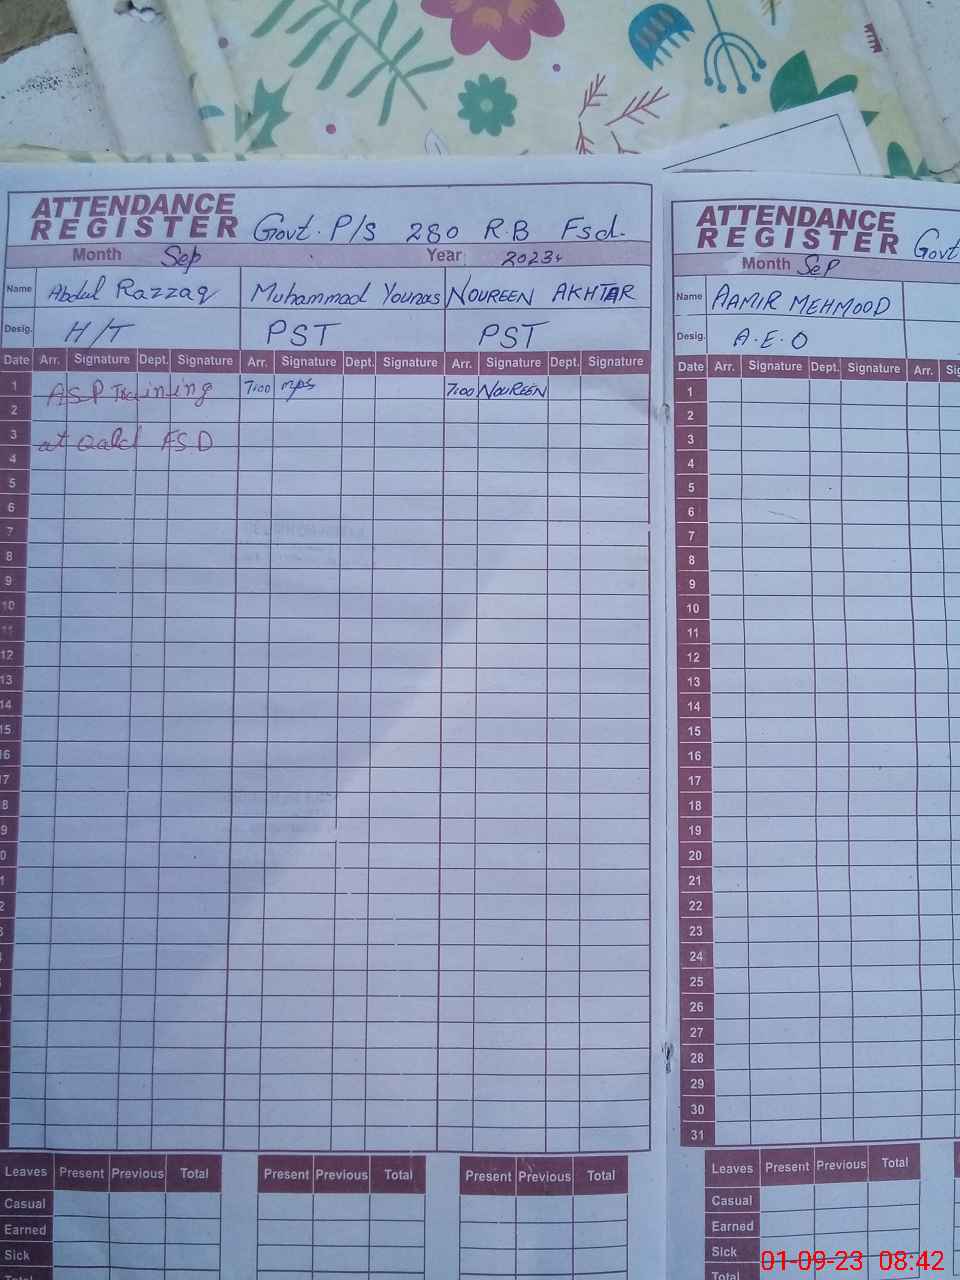 ATTENDANCE
REGISTER Govt. P/S 280 R.B Fsd.
Month Sep Year 2023
Name Abdul Razzaq Muhammad Younas NOUREEN AKHTAR
Desig. H/T PST PST
Date Arr. Signature Dept. Signature Arr. Signature Dept. Signature Arr. Signature Dept. Signature
1 ASP Training 7:00 7:00 NOUREEN
2
3 at FSD
4
5
6
7
8
9
10
11
12
13
14
15
16
17
18
19
20
Leaves Present Previous Total Present Previous Total Present Previous Total
Casual
Earned
Sick
Total
ATTENDANCE
REGISTER Govt
Month Sep
Name AAMIR MEHMOOD
Desig. A.E.O
Date Arr. Signature Dept. Signature Arr.
1
2
3
4
5
6
7
8
9
10
11
12
13
14
15
16
17
18
19
20
21
22
23
24
25
26
27
28
29
30
31
Leaves Present Previous Total
Casual
Earned
Sick
Total
01-09-23 08:42